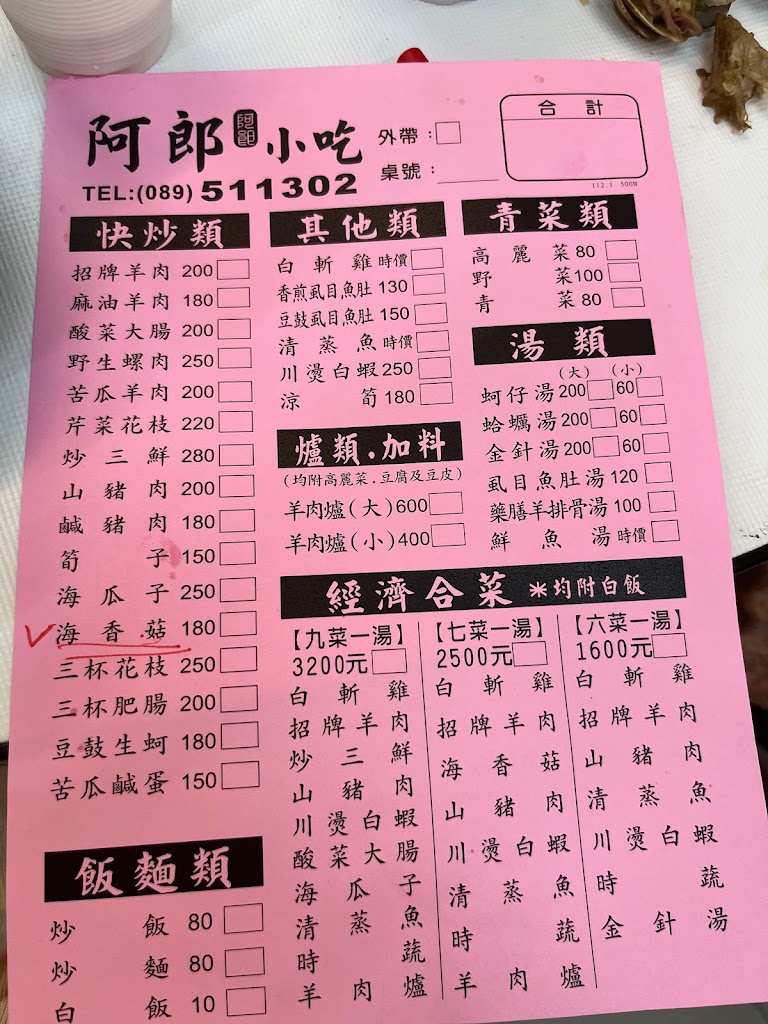 阿郎 阿郎 小吃
外帶：
桌號：
合計
TEL:(089)511302
112.1 500本
快炒類
招牌羊肉 200
麻油羊肉 180
酸菜大腸 200
野生螺肉 250
苦瓜羊肉 200
芹菜花枝 220
炒三鮮 280
山豬肉 200
鹹豬肉 180
筍子 150
海瓜子 250
海香菇 180
三杯花枝 250
三杯肥腸 200
豆鼓生蚵 180
苦瓜鹹蛋 150
飯麵類
炒飯 80
炒麵 80
白飯 10
其他類
白斬雞 時價
香煎虱目魚肚 130
豆鼓虱目魚肚 150
清蒸魚 時價
川燙白蝦 250
涼筍 180
爐類.加料
(均附高麗菜.豆腐及豆皮)
羊肉爐(大)600
羊肉爐(小)400
青菜類
高麗菜 80
野菜100
青菜 80
湯類
(大) (小)
蚵仔湯 200 60
蛤蠣湯 200 60
金針湯 200 60
虱目魚肚湯 120
藥膳羊排骨湯 100
鮮魚湯 時價
經濟合菜 ＊均附白飯
【九菜一湯】
3200元
白斬雞
招牌羊肉
炒三鮮
山豬肉
川燙白蝦
酸菜大腸
海瓜子
清蒸魚
時蔬
羊肉爐
【七菜一湯】
2500元
白斬雞
招牌羊肉
海香菇
山豬肉
川燙白蝦
清蒸魚
時蔬
羊肉爐
【六菜一湯】
1600元
白斬雞
招牌羊肉
山豬肉
清蒸魚
川燙白蝦
時蔬
金針湯